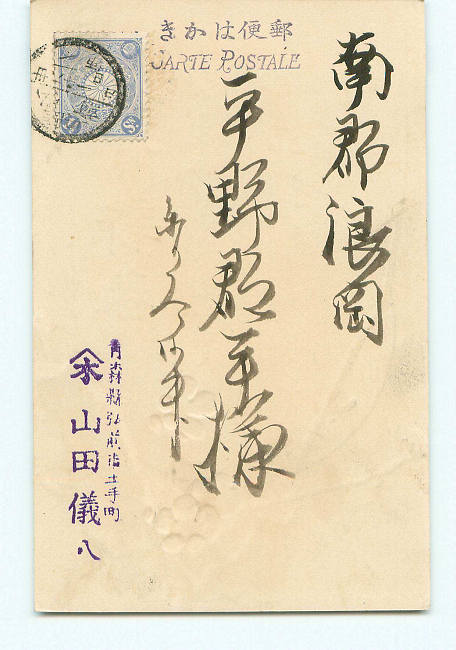 きかは便郵
CARTE POSTALE
南郡浪岡
平野郡三様
青森縣弘前市土手町
山田儀八